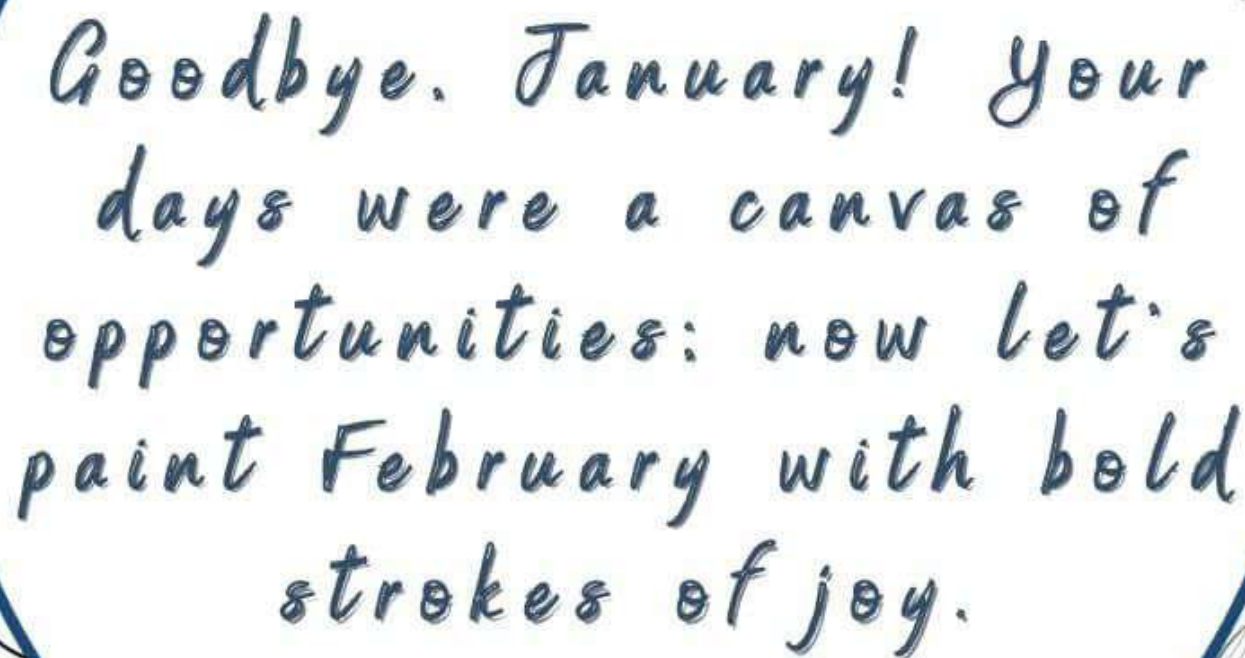 Goodbye. January! Your
days were a canvas of
opportunities: now let's
paint February with bold
strokes of joy.